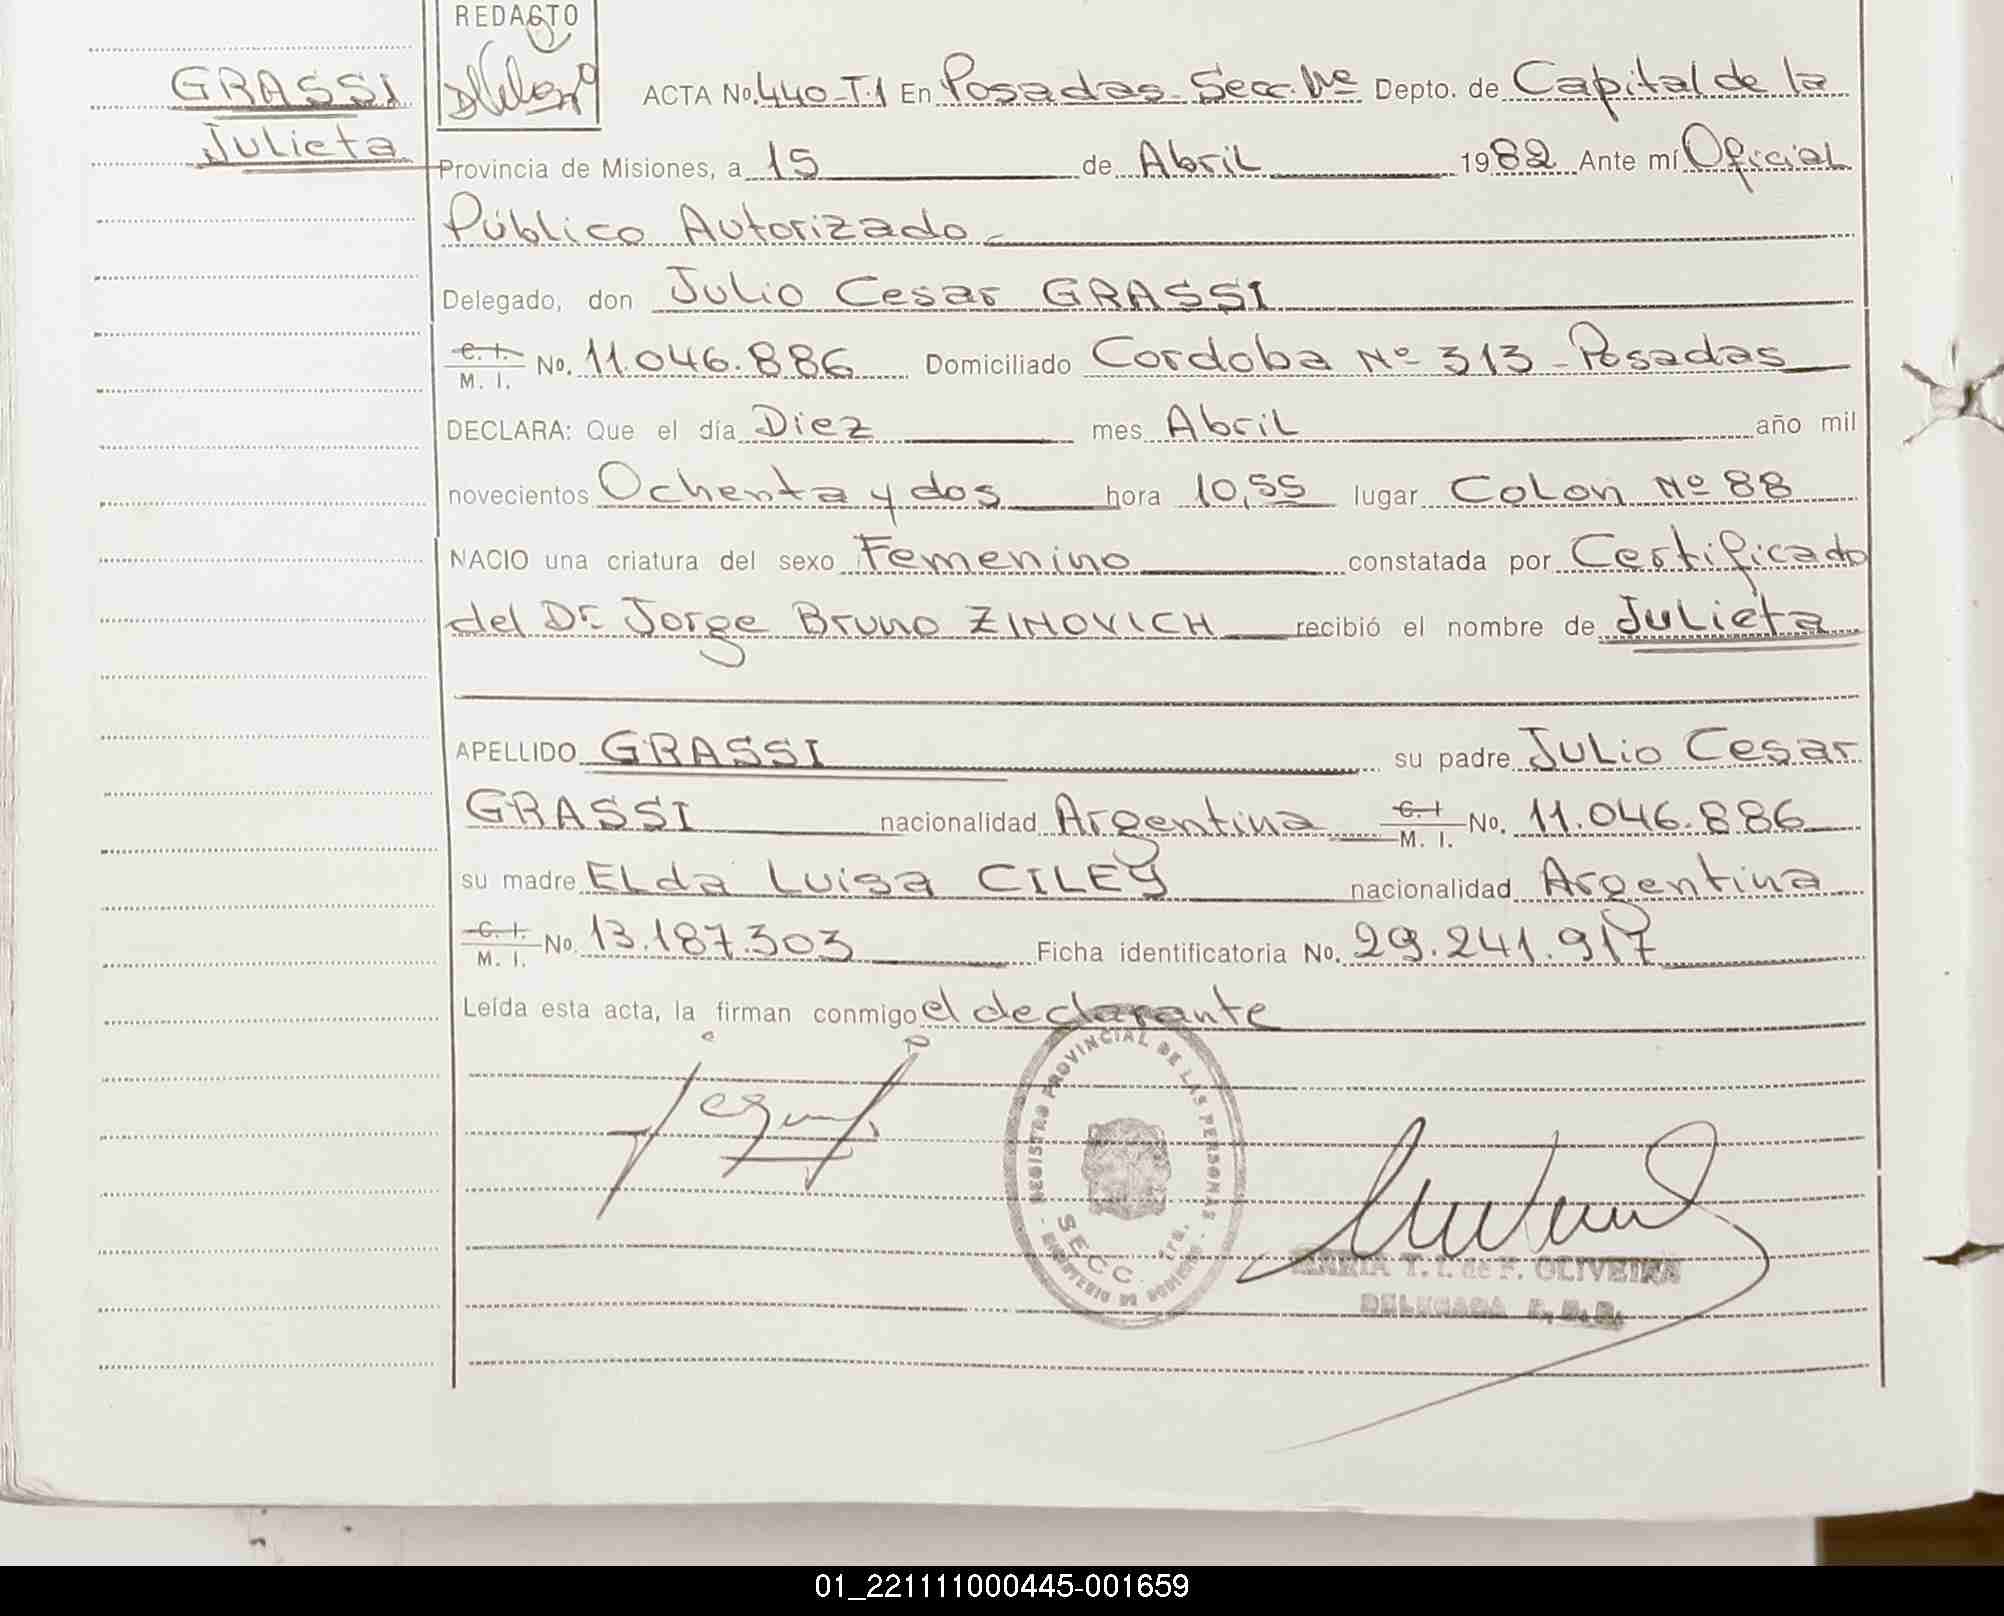 REDACTO
GRASSI
Julieta
ACTA No. 440-T.1 En Posadas Secc. 1ra Depto. de Capital de la
Provincia de Misiones, a 15 de Abril 1982 Ante mí Oficial
Público Autorizado
Delegado, don Julio Cesar GRASSI
C. I. / M. I. No. 11.046.886 Domiciliado Cordoba Nº 313 - Posadas
DECLARA: Que el día Diez mes Abril año mil
novecientos Ochenta y dos hora 10,55 lugar Colon Nº 88
NACIO una criatura del sexo Femenino constatada por Certificado
del Dr. Jorge Bruno ZINOVICH recibió el nombre de Julieta
APELLIDO GRASSI su padre Julio Cesar
GRASSI nacionalidad Argentina C. I. / M. I. No. 11.046.886
su madre Elda Luisa CILEY nacionalidad Argentina
C. I. / M. I. No. 13.187.303 Ficha identificatoria No. 29.241.917
Leída esta acta, la firman conmigo el declarante
REGISTRO PROVINCIAL DE LAS PERSONAS
SECC. 1ra.
MINISTERIO DE GOBIERNO
MARIA T. I. de F. OLIVEIRA
DELEGADA
01_221111000445-001659